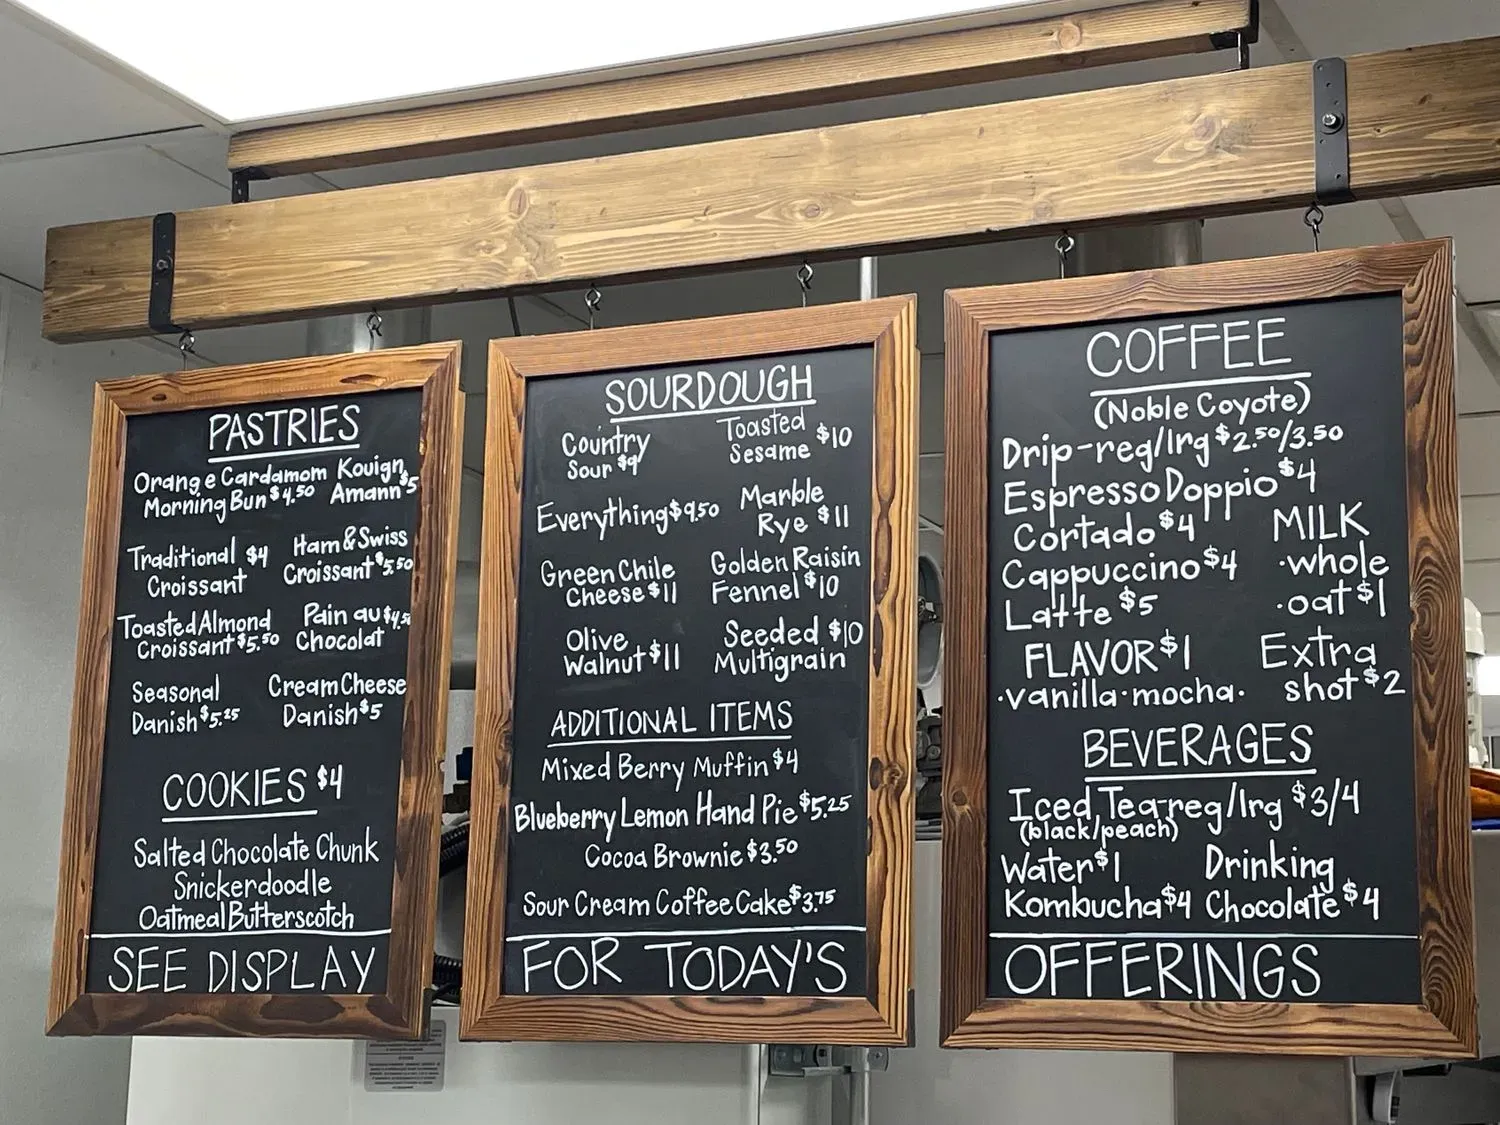 PASTRIES
Orange Cardamom
Morning Bun $4.50
Kouign
Amann $5
Traditional $4
Croissant
Ham & Swiss
Croissant $5.50
Toasted Almond
Croissant $5.50
Pain au $4.50
Chocolat
Seasonal
Danish $5.25
Cream Cheese
Danish $5
COOKIES $4
Salted Chocolate Chunk
Snickerdoodle
Oatmeal Butterscotch
SEE DISPLAY
SOURDOUGH
Country
Sour $9
Toasted
Sesame $10
Everything $9.50
Marble
Rye $11
Green Chile
Cheese $11
Golden Raisin
Fennel $10
Olive
Walnut $11
Seeded $10
Multigrain
ADDITIONAL ITEMS
Mixed Berry Muffin $4
Blueberry Lemon Hand Pie $5.25
Cocoa Brownie $3.50
Sour Cream Coffee Cake $3.75
FOR TODAY'S
COFFEE
(Noble Coyote)
Drip-reg/lrg $2.50/3.50
Espresso Doppio $4
Cortado $4
Cappuccino $4
Latte $5
MILK
·whole
·oat $1
FLAVOR $1
·vanilla·mocha·
Extra
shot $2
BEVERAGES
Iced Tea-reg/lrg $3/4
(black/peach)
Water $1
Kombucha $4
Drinking
Chocolate $4
OFFERINGS